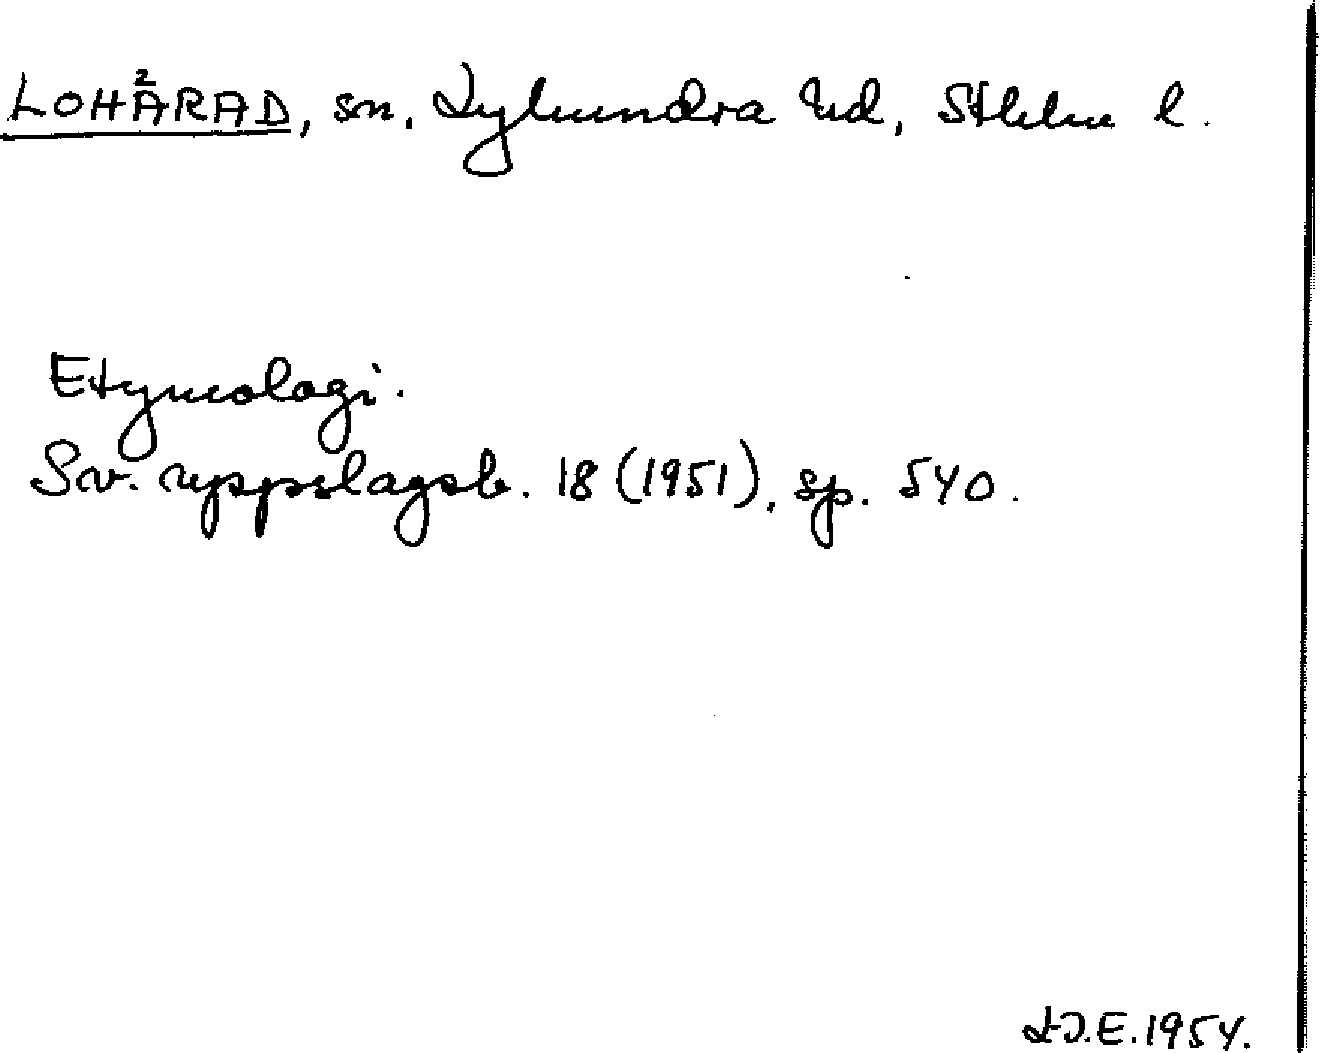 LOHÄRAD, sn, Lyhundra hd, Sthlm l.
Etymologi.
Sv. uppslagsb. 18 (1951), sp. 540.
E. 1954.